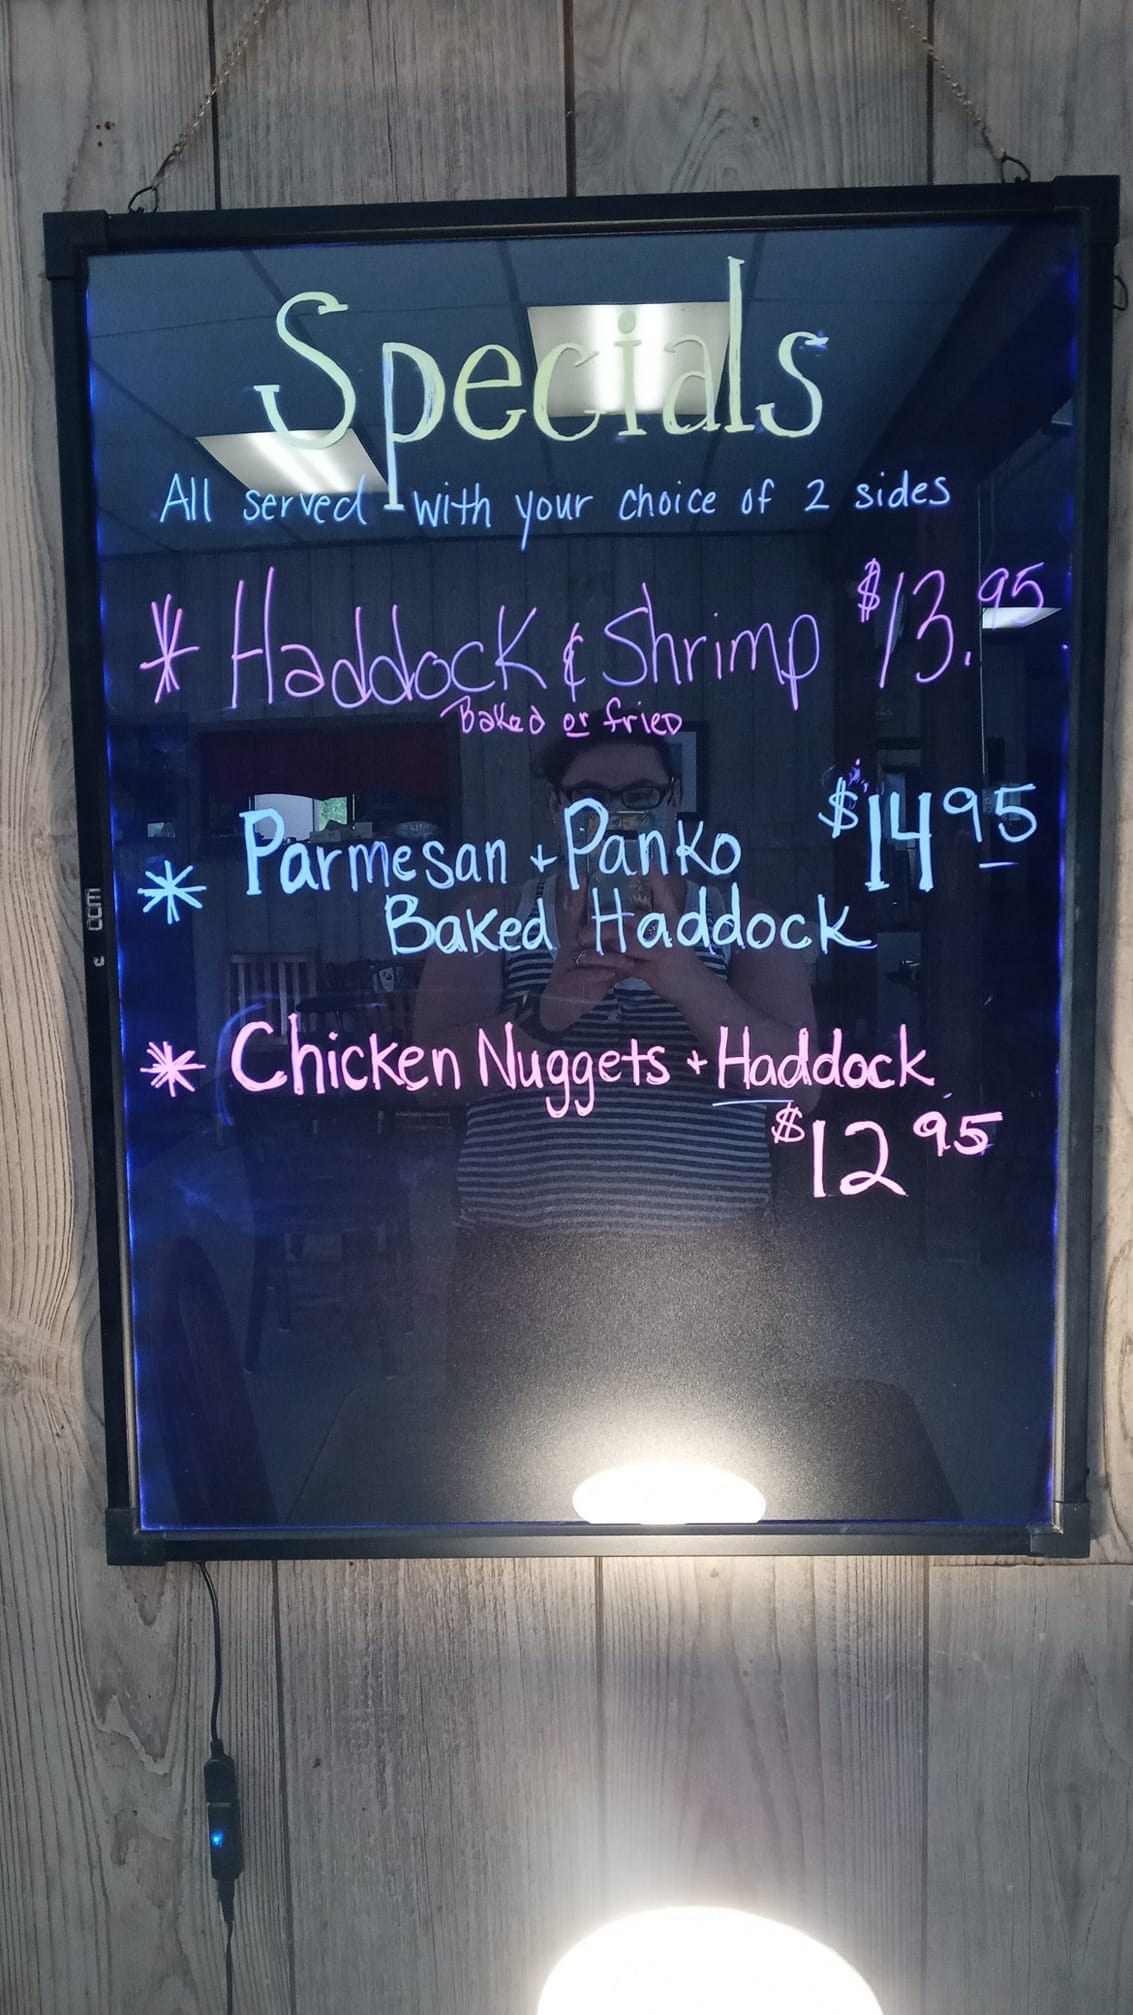 Specials
All served with your choice of 2 sides
* Haddock & Shrimp $13.95
Baked or fried
* Parmesan + Panko $14 95
Baked Haddock
* Chicken Nuggets + Haddock
$12 95